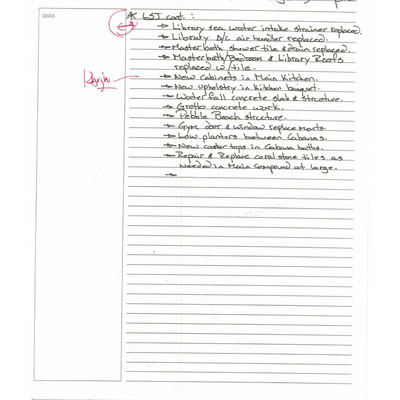 tasks
* LSJ cont. :
→ Library sea water intake strainer replaced
→ Library A/c air handler replaced.
→ Master bath shower tile & drain replaced.
→ Master bath/Bedroom & Library Roofs
replaced w/ tile.
→ New Cabinets in Main Kitchen.
→ New upholstry in Kitchen banquet.
→ Waterfall concrete slab & structure.
→ Grotto concrete work.
→ Pebble Beach structure.
→ Gym door & window replacements.
→ Low planters between Cabanas.
→ New counter tops in Cabana baths.
→ Repair & Replace coral stone tiles as
needed in Main Compound at large.
→